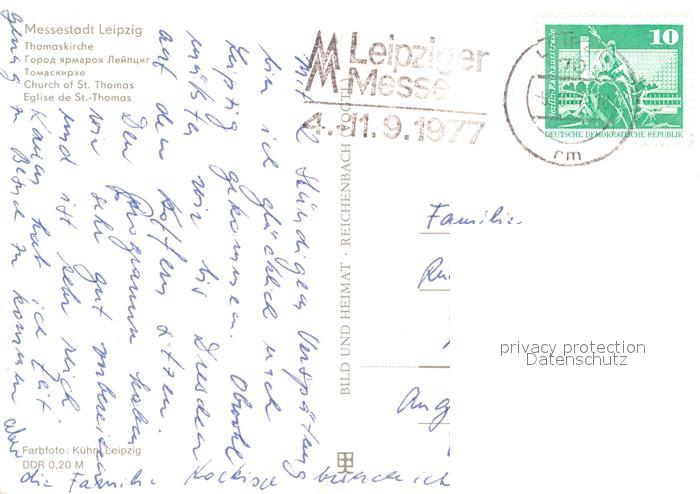 Messestadt Leipzig
Thomaskirche
Город ярмарок Лейпциг
Томаскирхе
Church of St. Thomas
Eglise de St.-Thomas
Leipziger
Messe
4.-11.9.1977
rm
10
Berlin-Rathausstraße
DEUTSCHE DEMOKRATISCHE REPUBLIK
Mit stündigen Verspätung
bin ich glücklich nach
Leipzig gekommen. Obwohl
mußten wir bis Dresden
auf den Koffern sitzen.
Den Programm haben
wir sehr gut vorbereitet
und ist sehr reich
Kaum hat ich Zeit
genug zu Besuch zu kommen aber
die Familie besuche ich
BILD UND HEIMAT · REICHENBACH (VOGTL)
Familie
Ang
privacy protection
Datenschutz
Farbfoto: Kühn, Leipzig
DDR 0,20 M